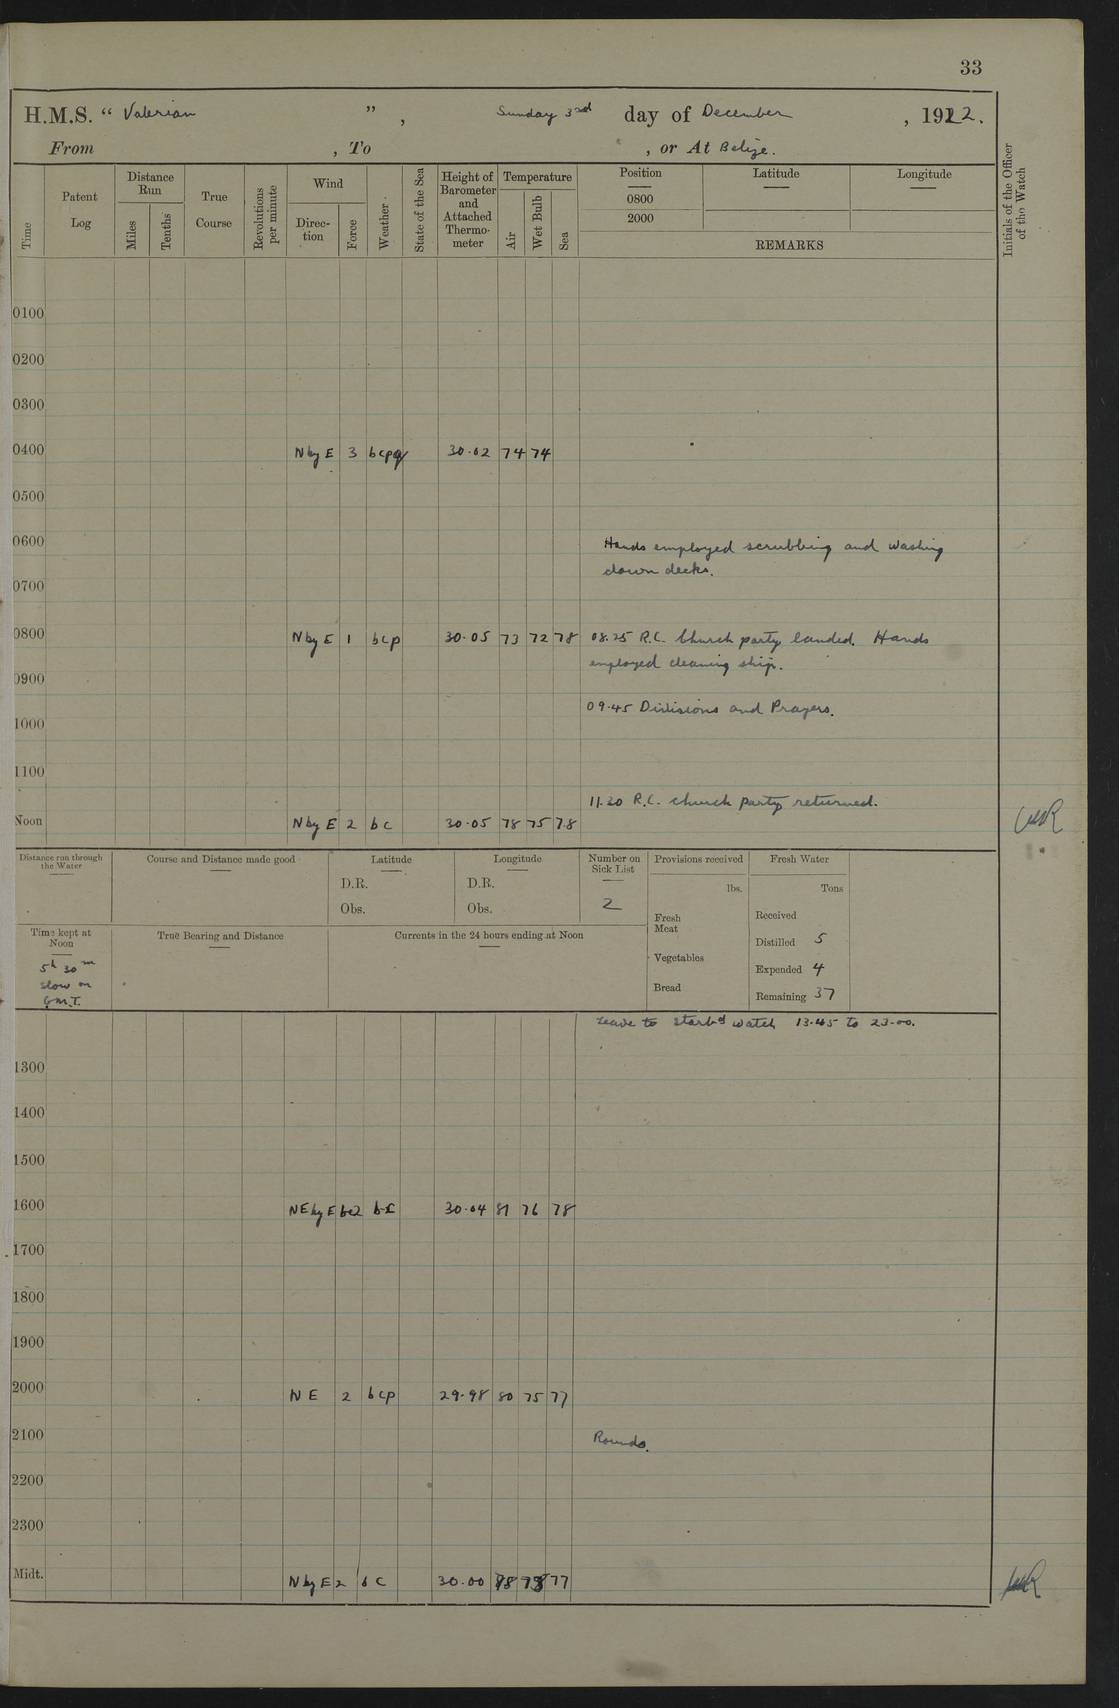 33
H.M.S. " Valerian " , Sunday 3rd day of December , 1922.
From , To , or At Belize.
Time
Patent Log
Distance Run
Miles
Tenths
True Course
Revolutions per minute
Wind
Direc-tion
Force
Weather
State of the Sea
Height of Barometer and Attached Thermo-meter
Temperature
Air
Wet Bulb
Sea
Position
0800
2000
Latitude
Longitude
REMARKS
Initials of the Officer of the Watch
0100
0200
0300
0400 N by E 3 bcpq 30.02 74 74
0500
0600 Hands employed scrubbing and washing
down decks.
0700
0800 N by E 1 bcp 30.05 73 72 78 08.25 R.C. Church party landed. Hands
employed cleaning ship.
0900
09.45 Divisions and Prayers.
1000
1100
11.20 R.C. church party returned.
Noon N by E 2 bc 30.05 78 75 78
Distance run through the Water
Course and Distance made good
Latitude
D.R.
Obs.
Longitude
D.R.
Obs.
Number on Sick List
2
Provisions received
lbs.
Fresh Meat
Vegetables
Bread
Fresh Water
Tons
Received
Distilled 5
Expended 4
Remaining 37
Time kept at Noon
5h 30m
slow on
G.M.T.
True Bearing and Distance
Currents in the 24 hours ending at Noon
Leave to starbd watch 13.45 to 23.00.
1300
1400
1500
1600 NE by E 2 bc 30.04 81 76 78
1700
1800
1900
2000 NE 2 bcp 29.98 80 75 77
2100 Rounds.
2200
2300
Midt. N by E 2 bc 30.00 78 77